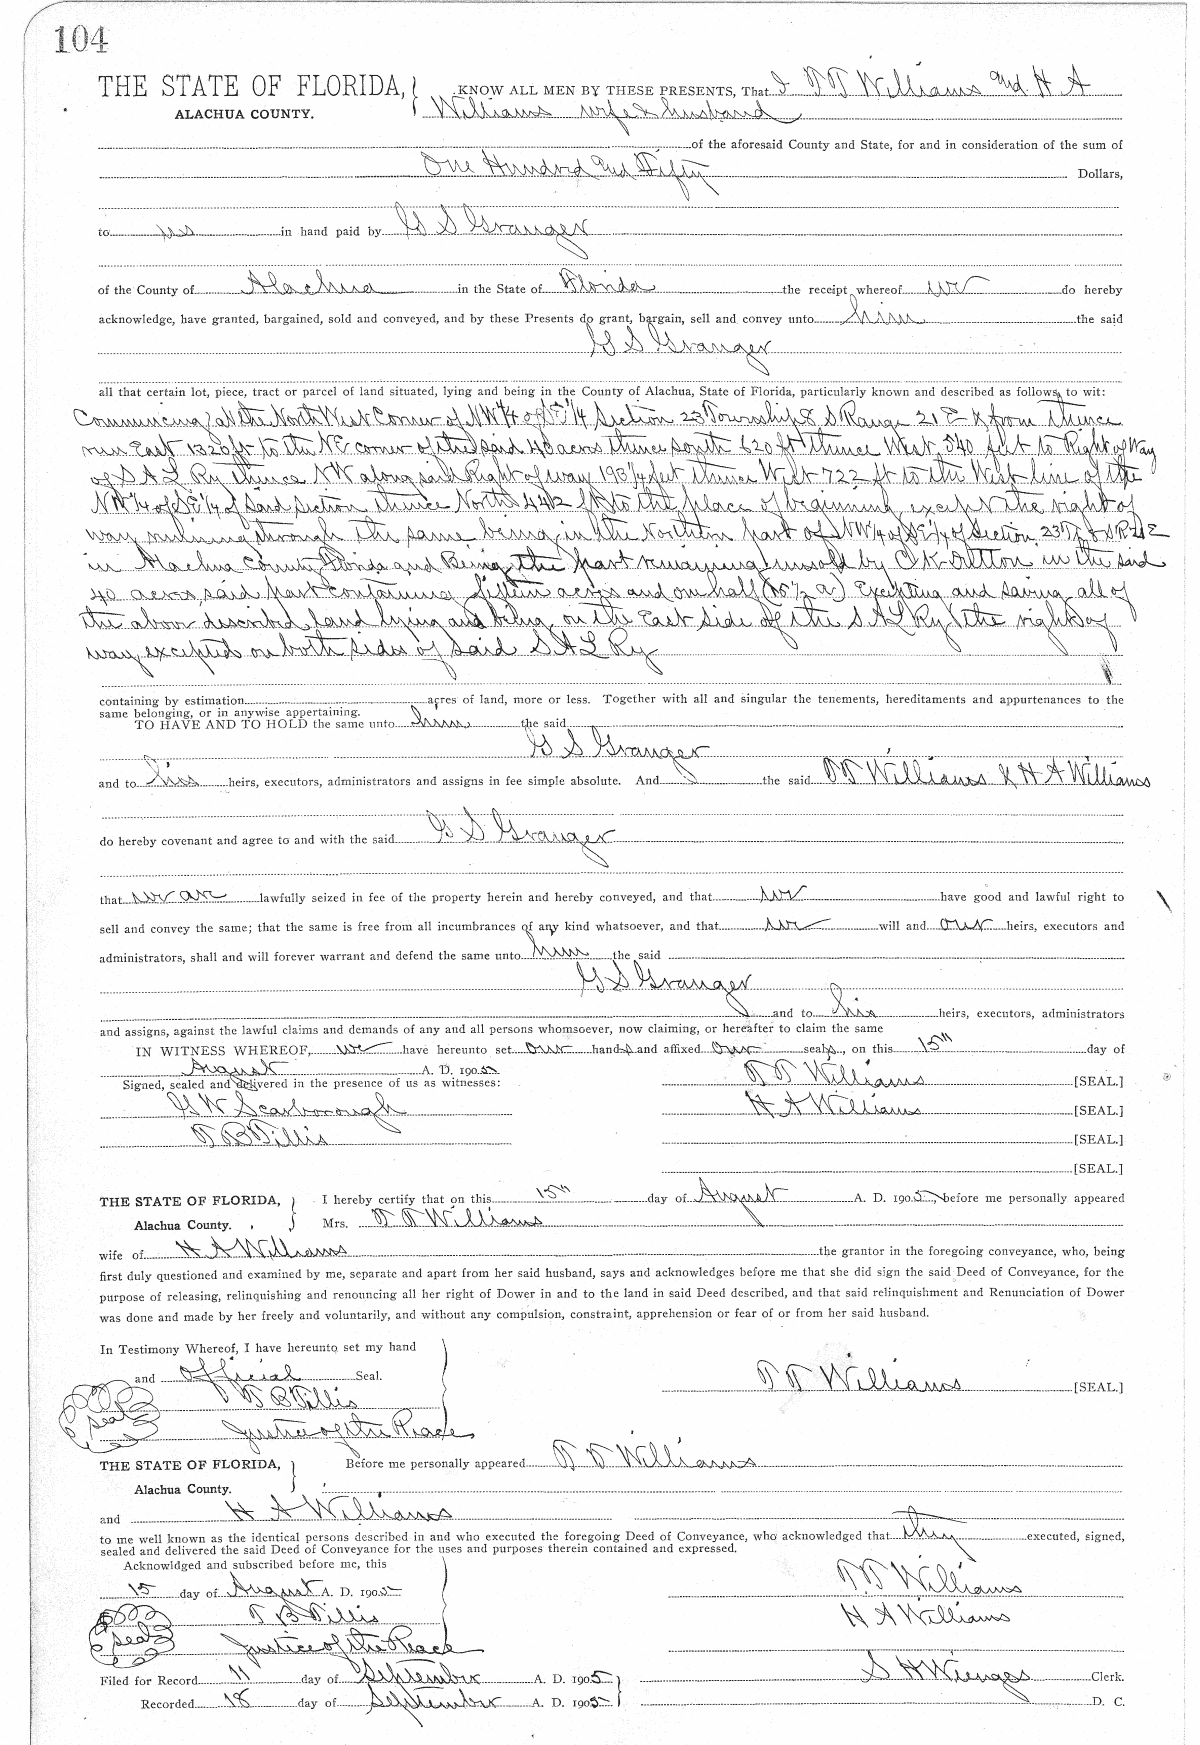 104
THE STATE OF FLORIDA, KNOW ALL MEN BY THESE PRESENTS, That I T T Williams and H A
ALACHUA COUNTY. Williams wife & husband
of the aforesaid County and State, for and in consideration of the sum of
One Hundred and Fifty Dollars,
to us in hand paid by G S Granger
of the County of Alachua in the State of Florida the receipt whereof we do hereby
acknowledge, have granted, bargained, sold and conveyed, and by these Presents do grant, bargain, sell and convey unto him the said
G S Granger
all that certain lot, piece, tract or parcel of land situated, lying and being in the County of Alachua, State of Florida, particularly known and described as follows, to wit:
Commencing at the North West Corner of NW 1/4 of SE 1/4 Section 23 Township 8 S Range 21 E & from thence
run East 1320 ft to the NE corner of the said 40 acres thence south 620 ft thence West 540 feet to Right of Way
of S A L Ry thence NW along said Right of way 193 1/4 feet thence West 722 ft to the West line of the
NW 1/4 of SE 1/4 of said Section thence North 442 ft to the place of beginning except the right of
way running through the same being in the Northern part of NW 1/4 of SE 1/4 of Section 23 T 8 S R 21 E
in Alachua County Florida and Being the part remaining unsold by C K Dutton in the said
40 acres, said part containing fifteen acres and one half (15 1/2 a) Excepting and saving all of
the above described land lying and being on the East side of the S A L Ry & the rights of
way excepted on both sides of said S A L Ry
containing by estimation acres of land, more or less. Together with all and singular the tenements, hereditaments and appurtenances to the
same belonging, or in anywise appertaining.
TO HAVE AND TO HOLD the same unto him the said
G S Granger
and to his heirs, executors, administrators and assigns in fee simple absolute. And the said T T Williams & H A Williams
do hereby covenant and agree to and with the said G S Granger
that we are lawfully seized in fee of the property herein and hereby conveyed, and that we have good and lawful right to
sell and convey the same; that the same is free from all incumbrances of any kind whatsoever, and that we will and our heirs, executors and
administrators, shall and will forever warrant and defend the same unto him the said
G S Granger
and to his heirs, executors, administrators
and assigns, against the lawful claims and demands of any and all persons whomsoever, now claiming, or hereafter to claim the same
IN WITNESS WHEREOF, we have hereunto set our hands and affixed our seals, on this 15th day of
August A. D. 1905
Signed, sealed and delivered in the presence of us as witnesses: T T Williams [SEAL.]
G W Scarborough H A Williams [SEAL.]
T B Tillis [SEAL.]
[SEAL.]
THE STATE OF FLORIDA, I hereby certify that on this 15th day of August A. D. 1905, before me personally appeared
Alachua County. Mrs. T T Williams
wife of H A Williams the grantor in the foregoing conveyance, who, being
first duly questioned and examined by me, separate and apart from her said husband, says and acknowledges before me that she did sign the said Deed of Conveyance, for the
purpose of releasing, relinquishing and renouncing all her right of Dower in and to the land in said Deed described, and that said relinquishment and Renunciation of Dower
was done and made by her freely and voluntarily, and without any compulsion, constraint, apprehension or fear of or from her said husband.
In Testimony Whereof, I have hereunto set my hand
and official Seal. T T Williams [SEAL.]
T B Tillis
seal Justice of the Peace
THE STATE OF FLORIDA, Before me personally appeared T T Williams
Alachua County.
and H A Williams
to me well known as the identical persons described in and who executed the foregoing Deed of Conveyance, who acknowledged that they executed, signed,
sealed and delivered the said Deed of Conveyance for the uses and purposes therein contained and expressed.
Acknowldged and subscribed before me, this
15 day of August A. D. 1905 T T Williams
T B Tillis H A Williams
seal Justice of the Peace
Filed for Record 11 day of September A. D. 1905 S H Wienges Clerk.
Recorded 18 day of September A. D. 1905 D. C.